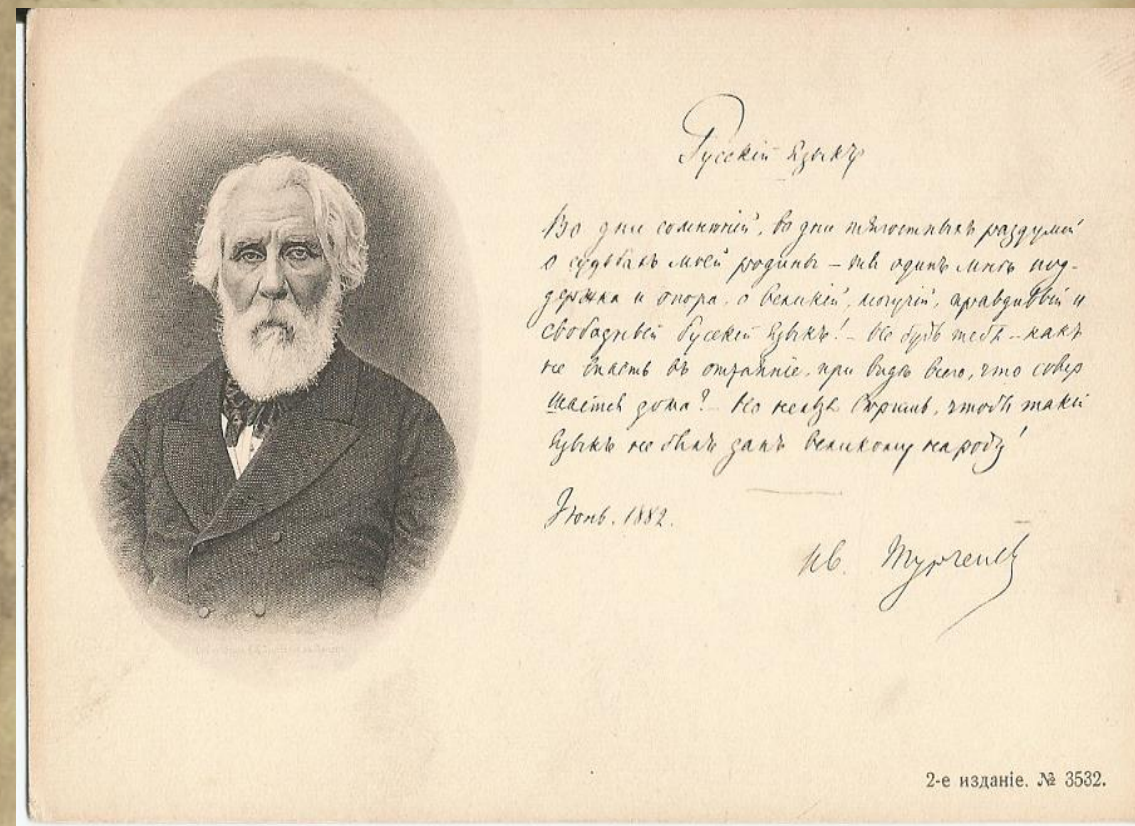 Русскій Языкъ
Во дни сомнѣній, во дни тягостныхъ раздумій
о судьбахъ моей родины – ты одинъ мнѣ под-
держка и опора, о великій, могучій, правдивый и
свободный Русскій Языкъ! – Не будь тебя – какъ
не впасть въ отчаяніе, при видѣ всего, что совер
шается дома? – Но нельзя вѣрить, чтобы такой
языкъ не былъ данъ великому народу!
Іюнь. 1882.
Ив. Тургенев
2-е изданіе. № 3532.